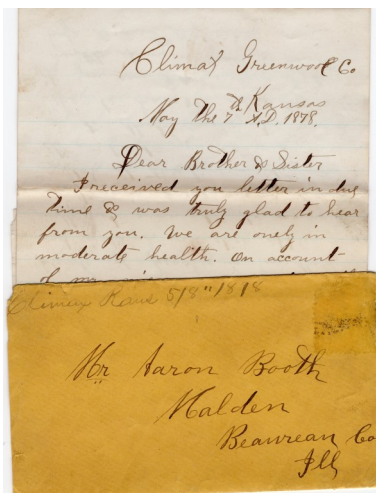 Climax Greenwood Co
Kansas
May the 7th A.D. 1878.
Dear Brother & Sister
I received you letter in due
time & was truly glad to hear
from you. We are onely in
moderate health. on account
of my
Climax Kans 5/8"/1878
Mr Aaron Booth
Malden
Beaurean Co
Ill